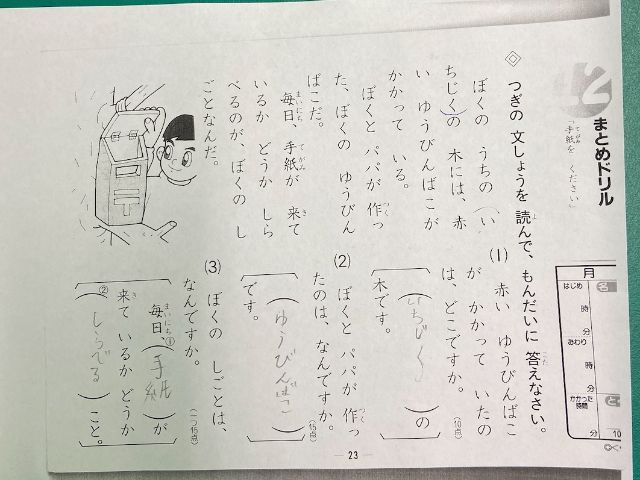 まとめドリル
「手紙を ください」
月
名
はじめ
時
分
おわり
時
分
かかった
時間
分
と
10
◇ つぎの 文しょうを 読んで、もんだいに 答えなさい。
ぼくの うちの い
ちじくの 木には、赤
い ゆうびんばこが
かかって いる。
ぼくと パパが 作っ
た、ぼくの ゆうびん
ばこだ。
毎日、手紙が 来て
いるか どうか しら
べるのが、ぼくの し
ごとなんだ。
(1) 赤い ゆうびんばこ
が かかって いたの
は、どこですか。
(10点)
(いちじく)の
木です。
(2) ぼくと パパが 作っ
たのは、なんですか。
(15点)
(ゆうびんばこ)
です。
(3) ぼくの しごとは、
なんですか。
(一つ15点)
毎日、①(手紙)が
来て いるか どうか
②(しらべる)こと。
23